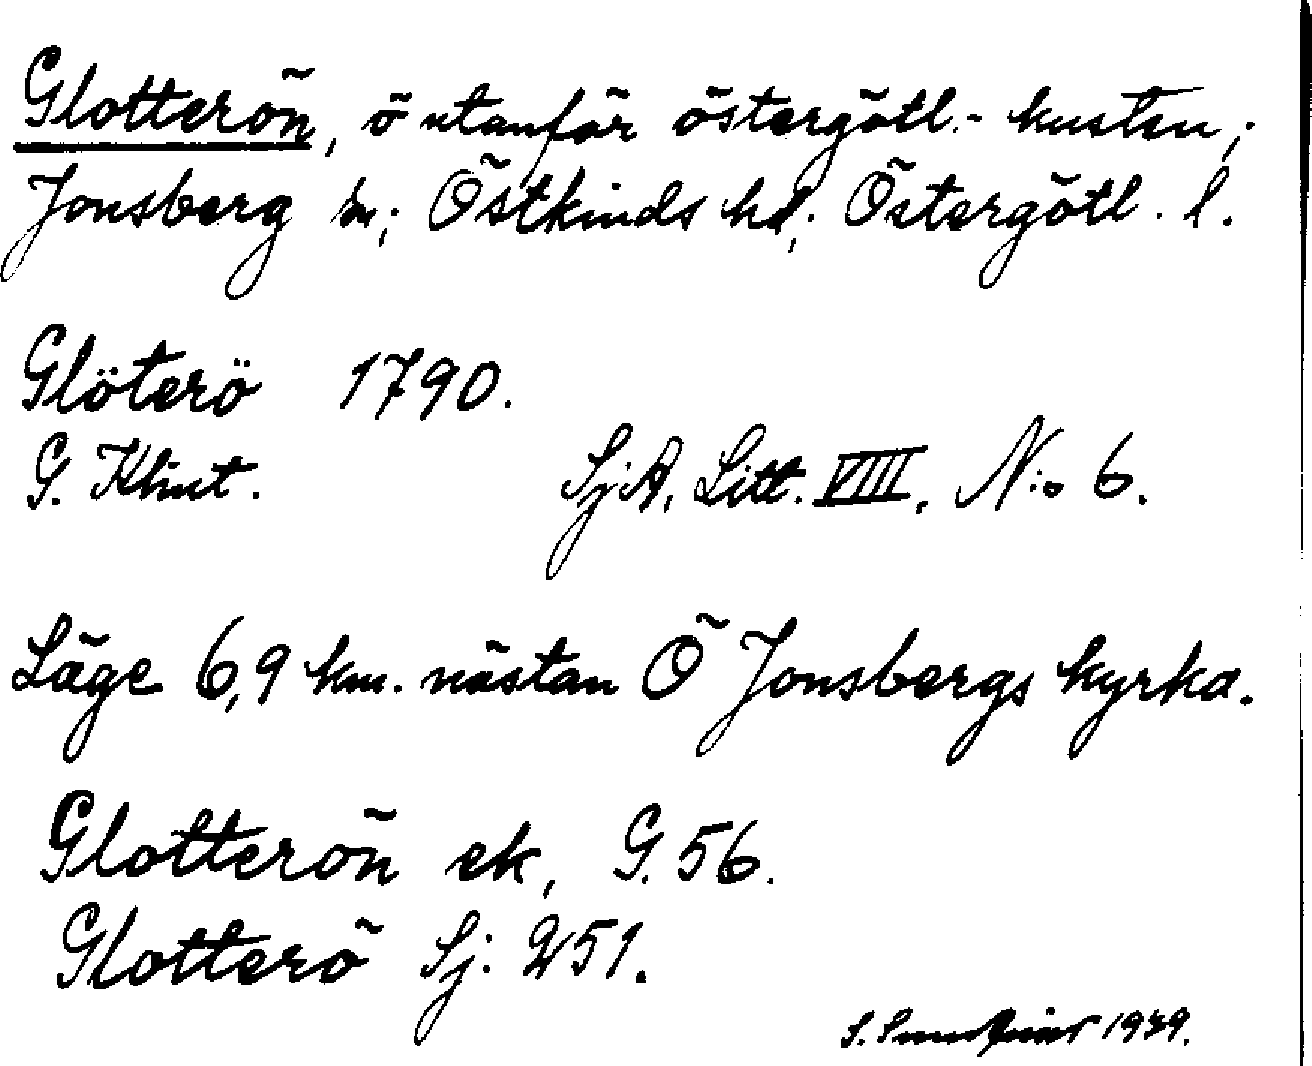 Glotterön, ö utanför östergötl.- kusten;
Jonsberg sn; Östkinds hd; Östergötl. l.
Glöterö 1790.
G. Klint. SjA, Litt. VIII, N:o 6.
Läge 6,9 km. nästan Ö Jonsbergs kyrka.
Glotterön ek, G. 56.
Glotterö Sj. 251.
S. 1939.